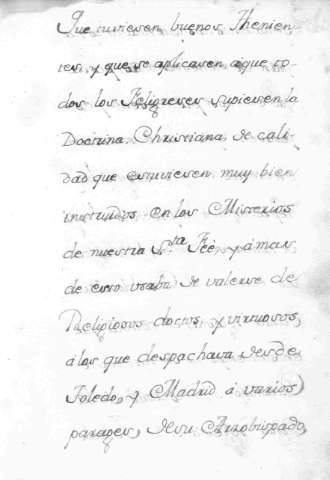 Que tuviesen buenos Thenien-
tes, y que se aplicasen aque to-
dos los Feligreses supiesen la
Doctrina Christiana de cali-
dad que estuviesen muy bien
instruidos en los Misterios
de nuestra S.ta Fee, y á mas
de esto usaba de valerse de
Religiosos doctos y virtuosos,
á los que despachava desde
Toledo, y Madrid á varios
parages, de su Arzobispado,